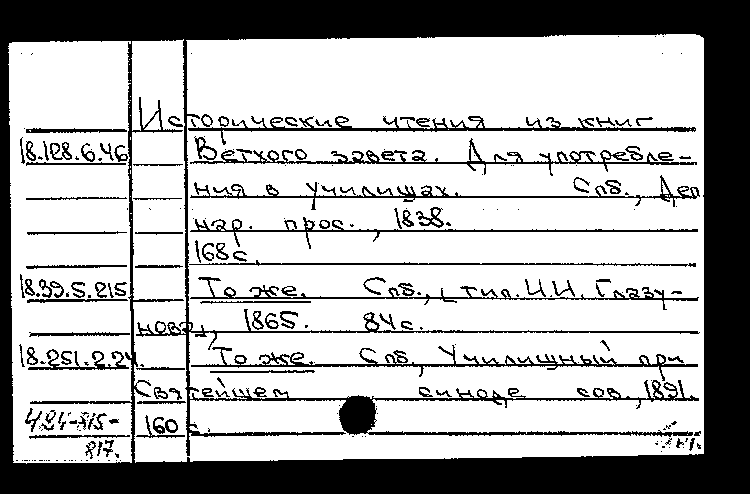 Исторические чтения из книг
18.128.6.46 Ветхого завета. Для употребле-
ния в училищах. Спб., Деп.
нар. прос., 1838.
168 с.
18.39.5.215 То же. Спб., [тип. И.И. Глазу-
нова], 1865. 84 с.
18.251.2.24. То же. Спб, Училищный при
Святейшем синоде сов., 1891.
424-815- 160 с.
817.